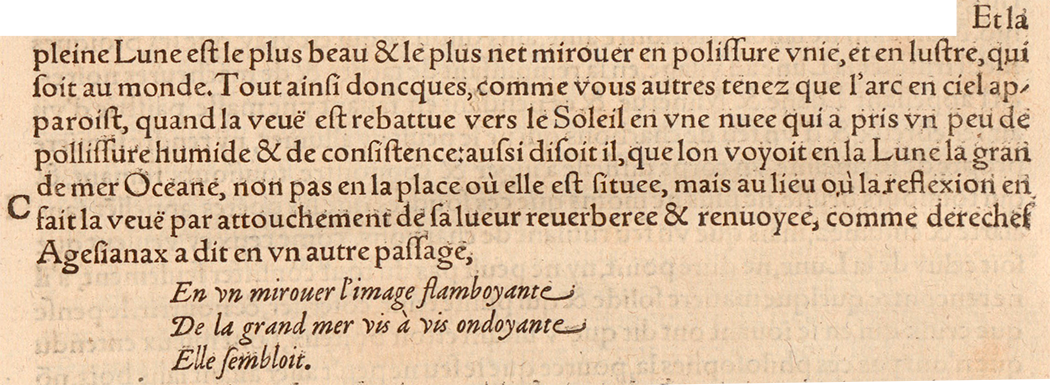 Et la
pleine Lune eſt le plus beau & le plus net mirouer en poliſſure vnie, et en luſtre, qui
ſoit au monde. Tout ainſi doncques, comme vous autres tenez que l'arc en ciel ap-
paroiſt, quand la veuë eſt rebattue vers le Soleil en vne nuee qui a pris vn peu de
polliſſure humide & de conſiſtence: auſsi diſoit il, que lon voyoit en la Lune la gran
de mer Oceane, non pas en la place où elle eſt ſituee, mais au lieu où la reflexion en
C fait la veuë par attouchement de ſa lueur reuerberee & renuoyee, comme derechef
Ageſianax a dit en vn autre paſſage,
En vn mirouer l'image flamboyante
De la grand mer vis à vis ondoyante
Elle ſembloit.